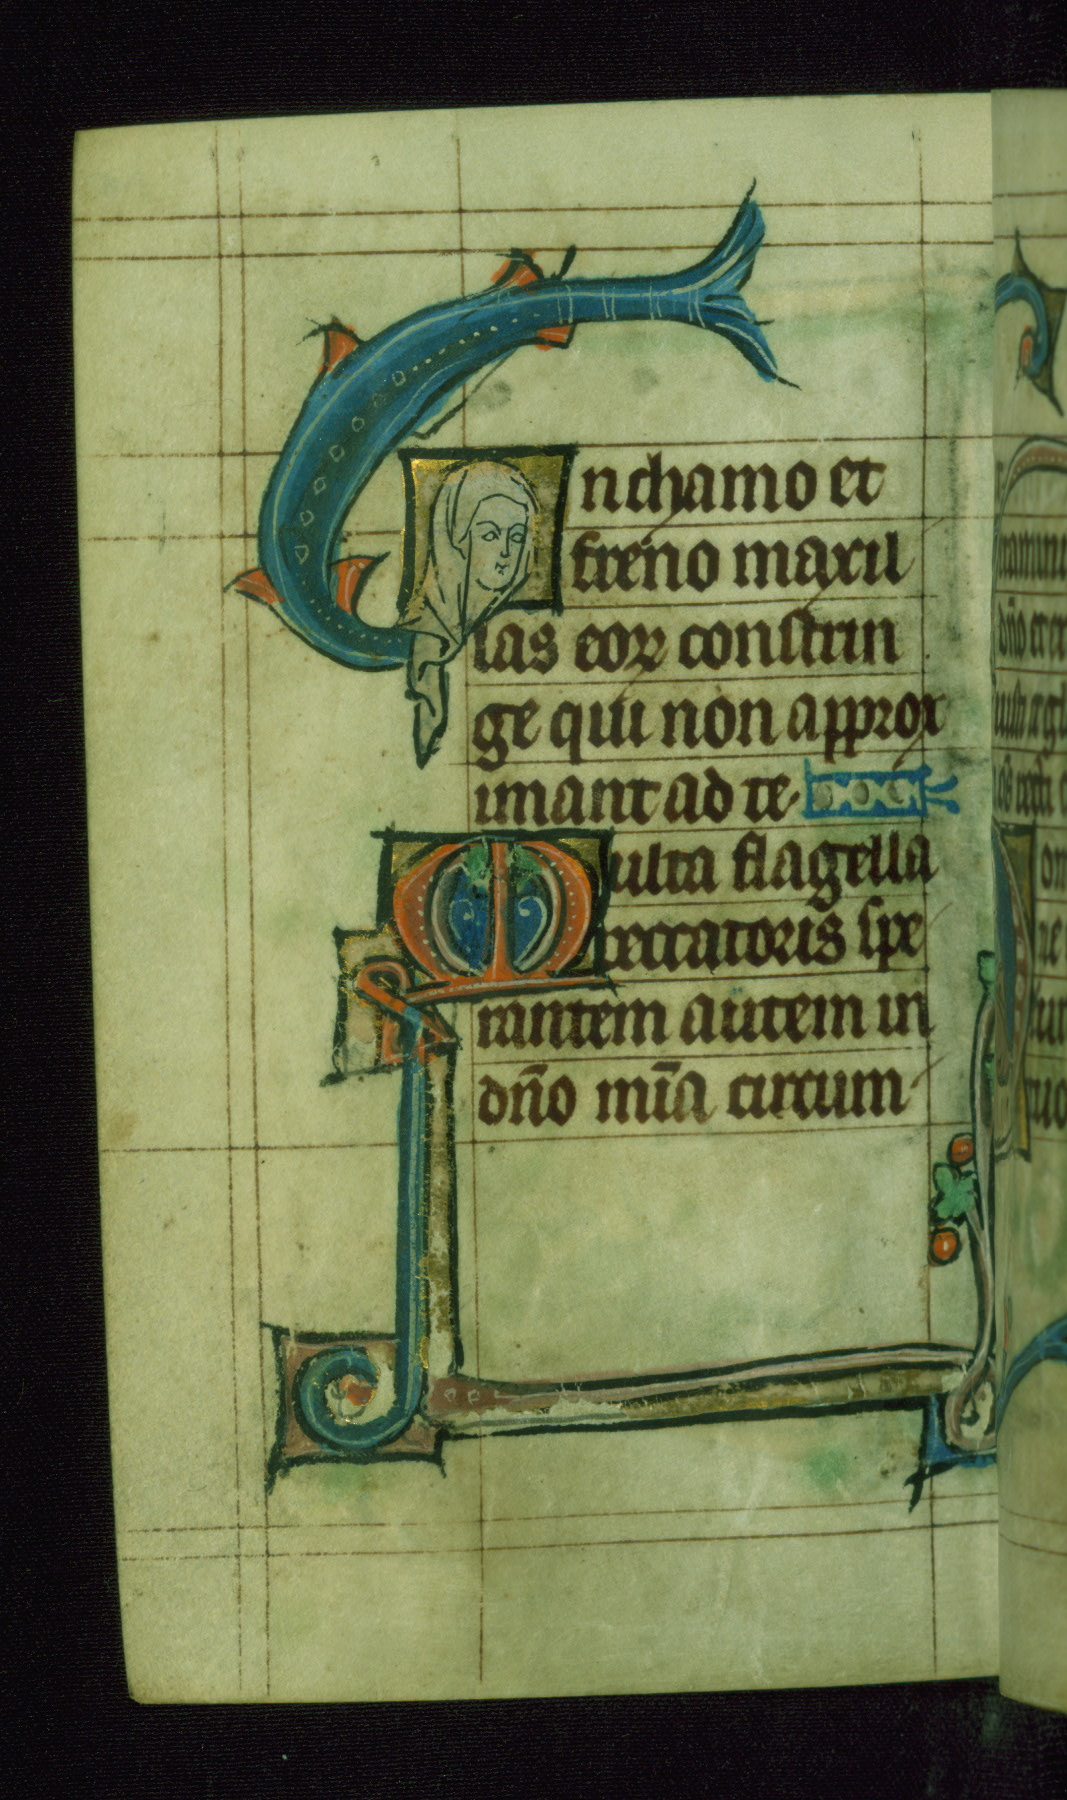 In chamo et
freno maxil
las eoꝝ constrin
ge qui non approx
imant ad te
Multa flagella
peccatoris spe
rantem autem in
dño mīa circum